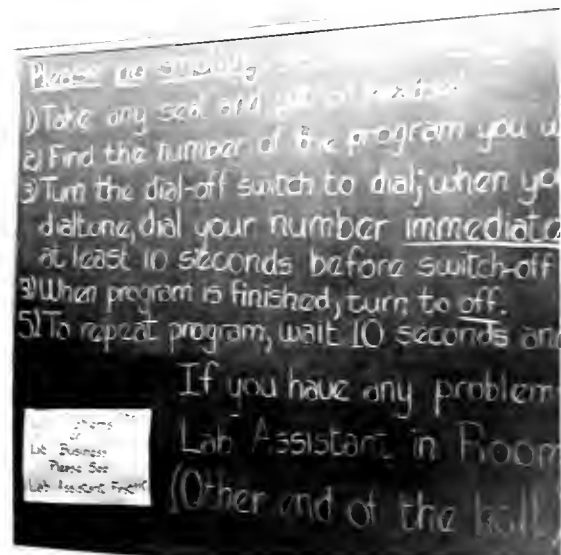 Please no smoking
1) Take any seat and put on headset
2) Find the number of the program you w
3) Turn the dial-off switch to dial; when yo
dialtone, dial your number immediate
at least 10 seconds before switch-off
When program is finished, turn to off.
5) To repeat program, wait 10 seconds and
If you have any problem
Lab Assistant in Room
(Other end of the hall)
or
Lab Business
Please See
Lab Assistant